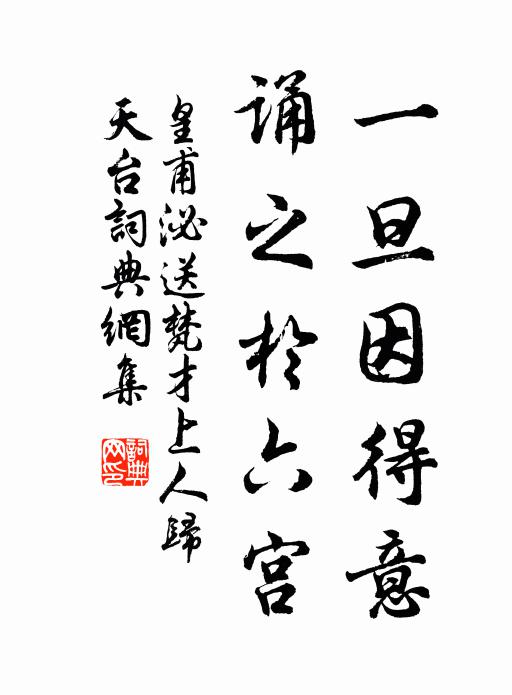 一旦因得意
诵之於六宫
皇甫泌送梵才上人歸
天台詞典網集
詞典
网印